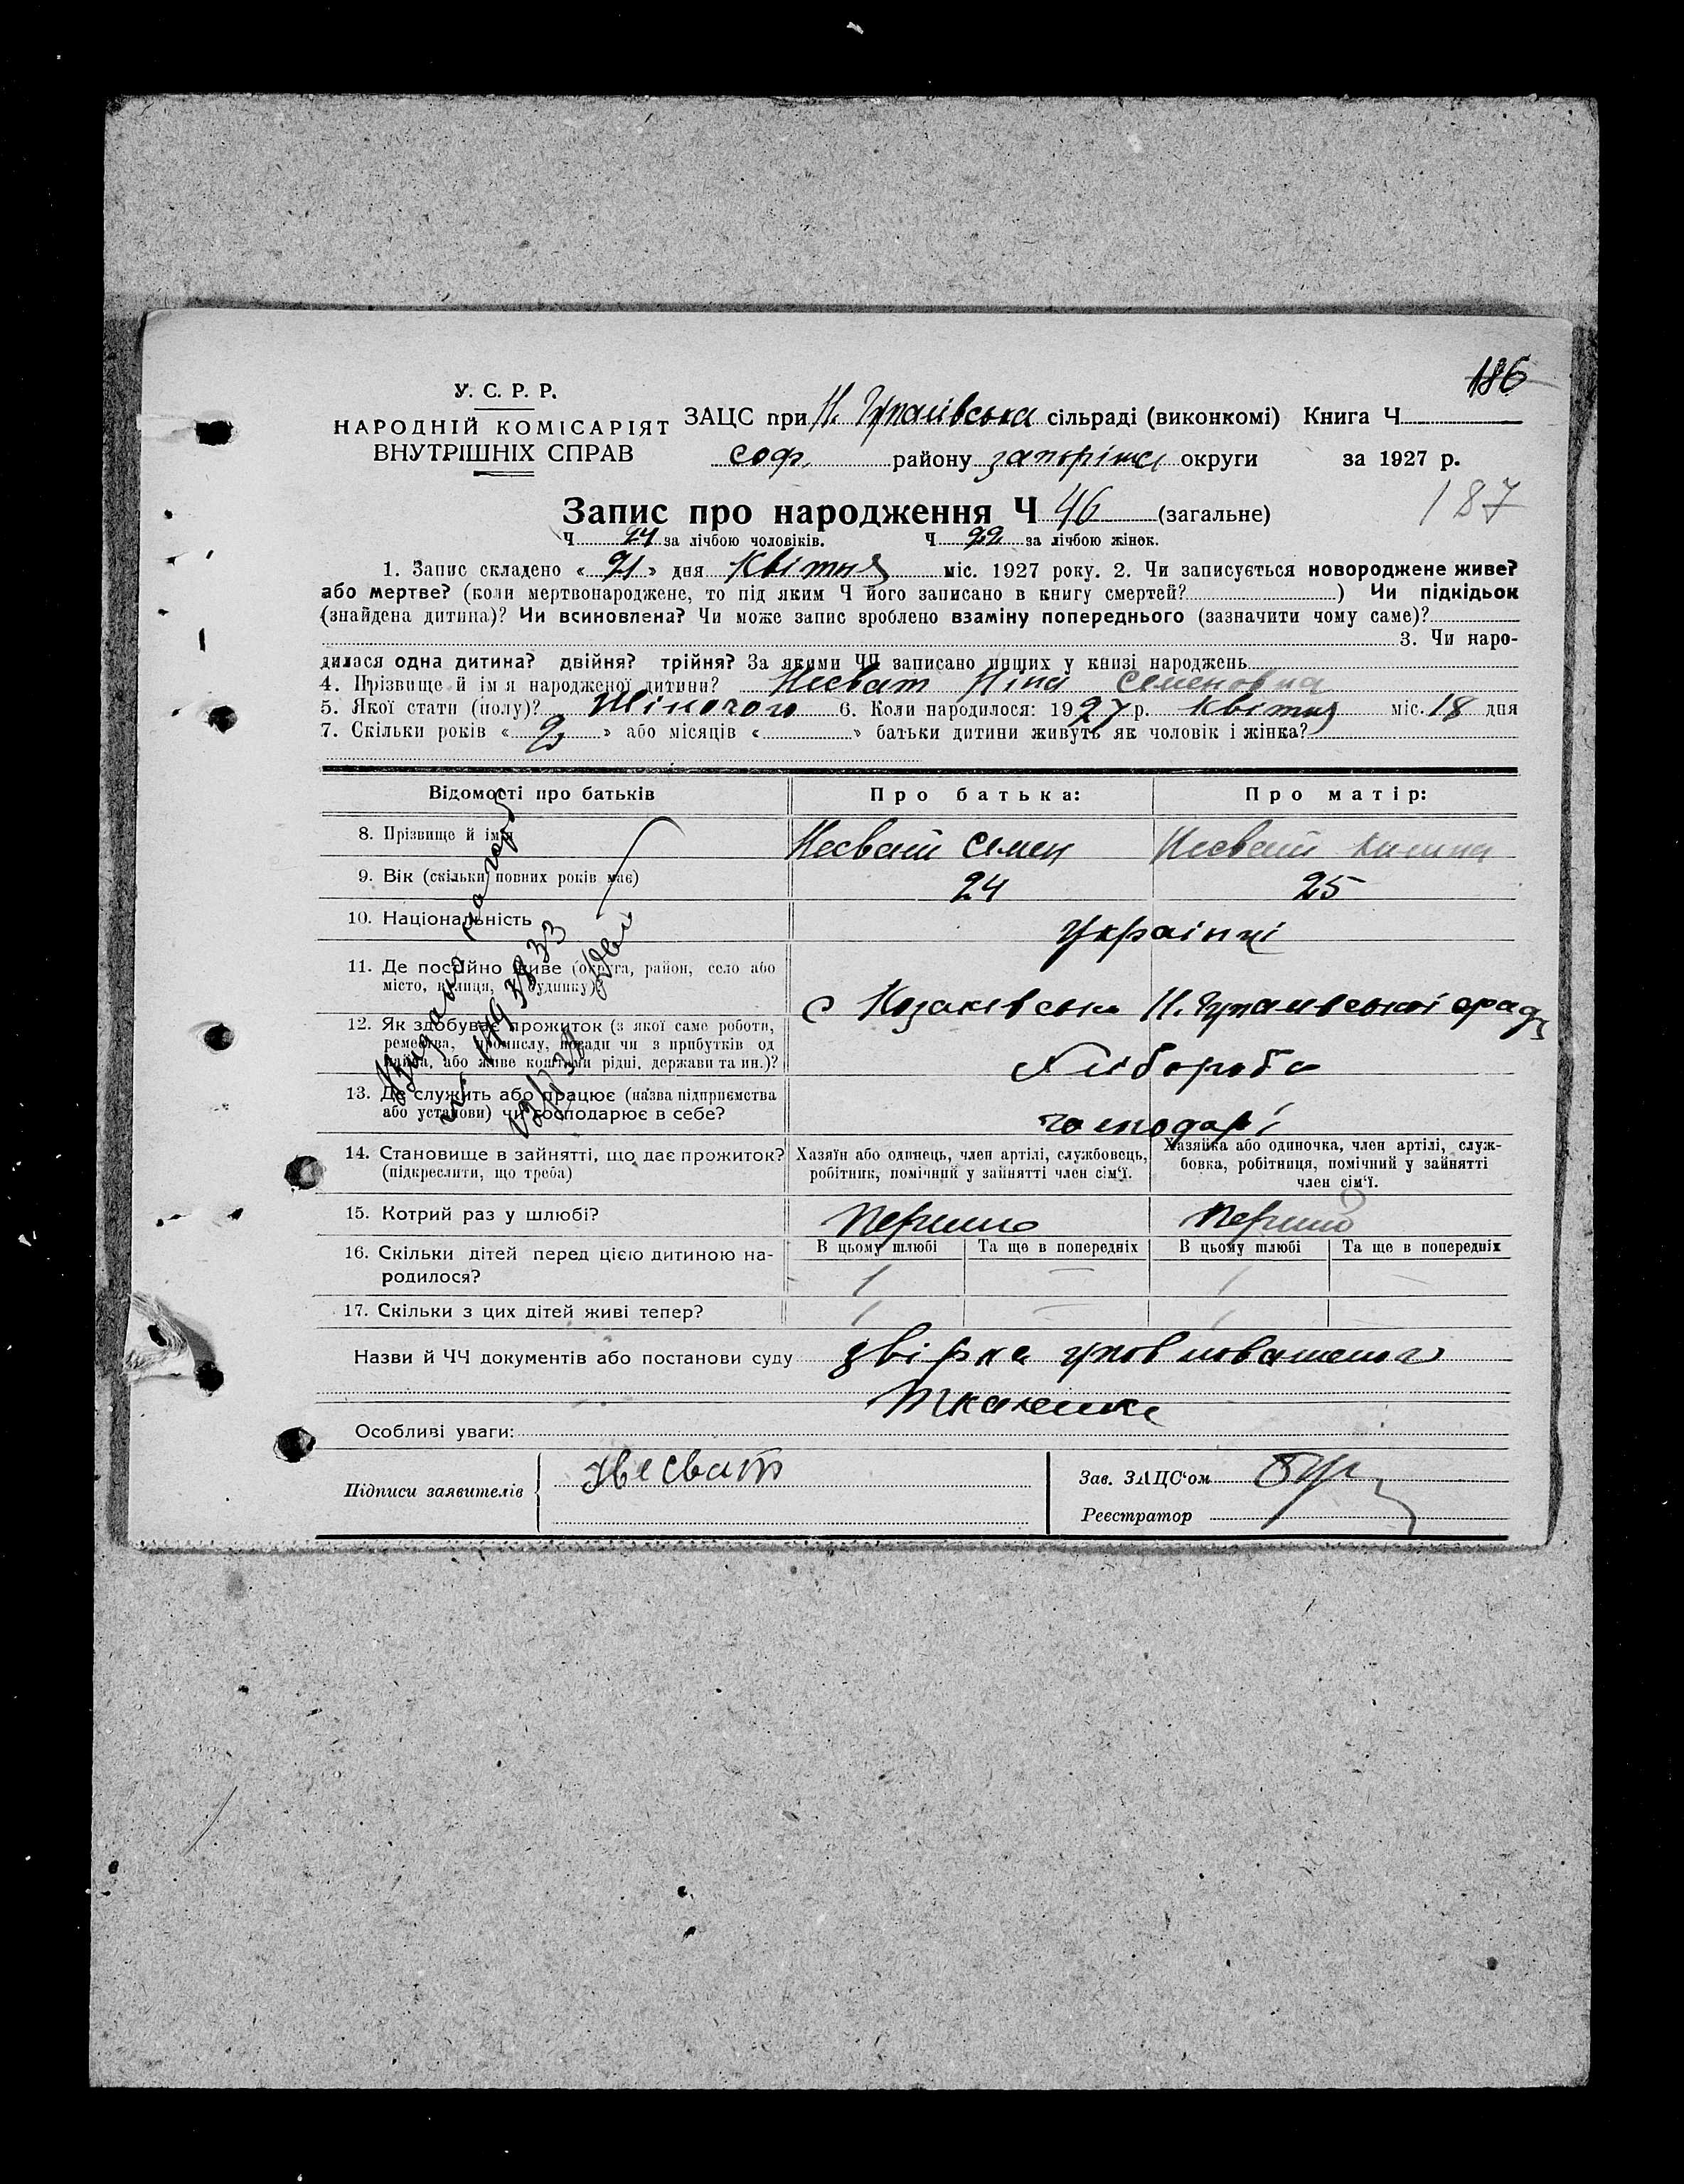 186
У. С. Р. Р.
НАРОДНІЙ КОМІСАРІЯТ
ВНУТРІШНІХ СПРАВ
ЗАЦС при Н. Гупалівська сільраді (виконкомі) Книга Ч
соф. району запоріжж округи за 1927 р.
187
Запис про народження Ч 46 (загальне)
Ч 24 за лічбою чоловіків. Ч 22 за лічбою жінок.
1. Запис складено « 21 » дня Квітня міс. 1927 року. 2. Чи записується новороджене живе?
або мертве? (коли мертвонароджене, то під яким Ч його записано в книгу смертей? ) Чи підкідьок
(знайдена дитина)? Чи всиновлена? Чи може запис зроблено взаміну попереднього (зазначити чому саме)?
3. Чи наро-
дилася одна дитина? двійня? трійня? За якими ЧЧ записано инших у книзі народжень
4. Прізвище й ім я народженої дитини? Несват Ніна Семеновна
5. Якої стати (полу)? Жіночого 6. Коли народилося: 1927 р. квітня міс. 18 дня
7. Скільки років « 2 » або місяців « » батьки дитини живуть як чоловік і жінка?
Відомості про батьків Про батька: Про матір:
8. Прізвище й імя Несват Семен Несват
9. Вік (скільки повних років має) 24 25
10. Національність Українці
11. Де постійно живе (округа, район, село або
місто, вулиця, будинку)? с Козаківська Н. Гупалівської сради
12. Як здобуває прожиток (з якої саме роботи,
ремества, промислу, посади чи з прибутків од
майна, або живе коштами рідні, держави та ин.)? Хлібороби
13. Де служить або працює (назва підприємства
або установи) чи господарює в себе? господарі
14. Становище в зайнятті, що дає прожиток?
(підкреслити, що треба)
Хазяїн або одинець, член артілі, службовець,
робітник, помічний у зайнятті член сім‘ї.
Хазяйка або одиночка, член артілі, служ-
бовка, робітниця, помічний у зайнятті
член сім‘ї.
15. Котрий раз у шлюбі? Перший Перший
16. Скільки дітей перед цією дитиною на-
родилося?
В цьому шлюбі Та ще в попередніх В цьому шлюбі Та ще в попередніх
1 — 1 —
17. Скільки з цих дітей живі тепер? 1 — 1 —
Назви й ЧЧ документів або постанови суду звірка уповноваженого
Ткаченка
Особливі уваги:
Підписи заявителів Несват
Зав. ЗАЦС‘ом
Реєстратор